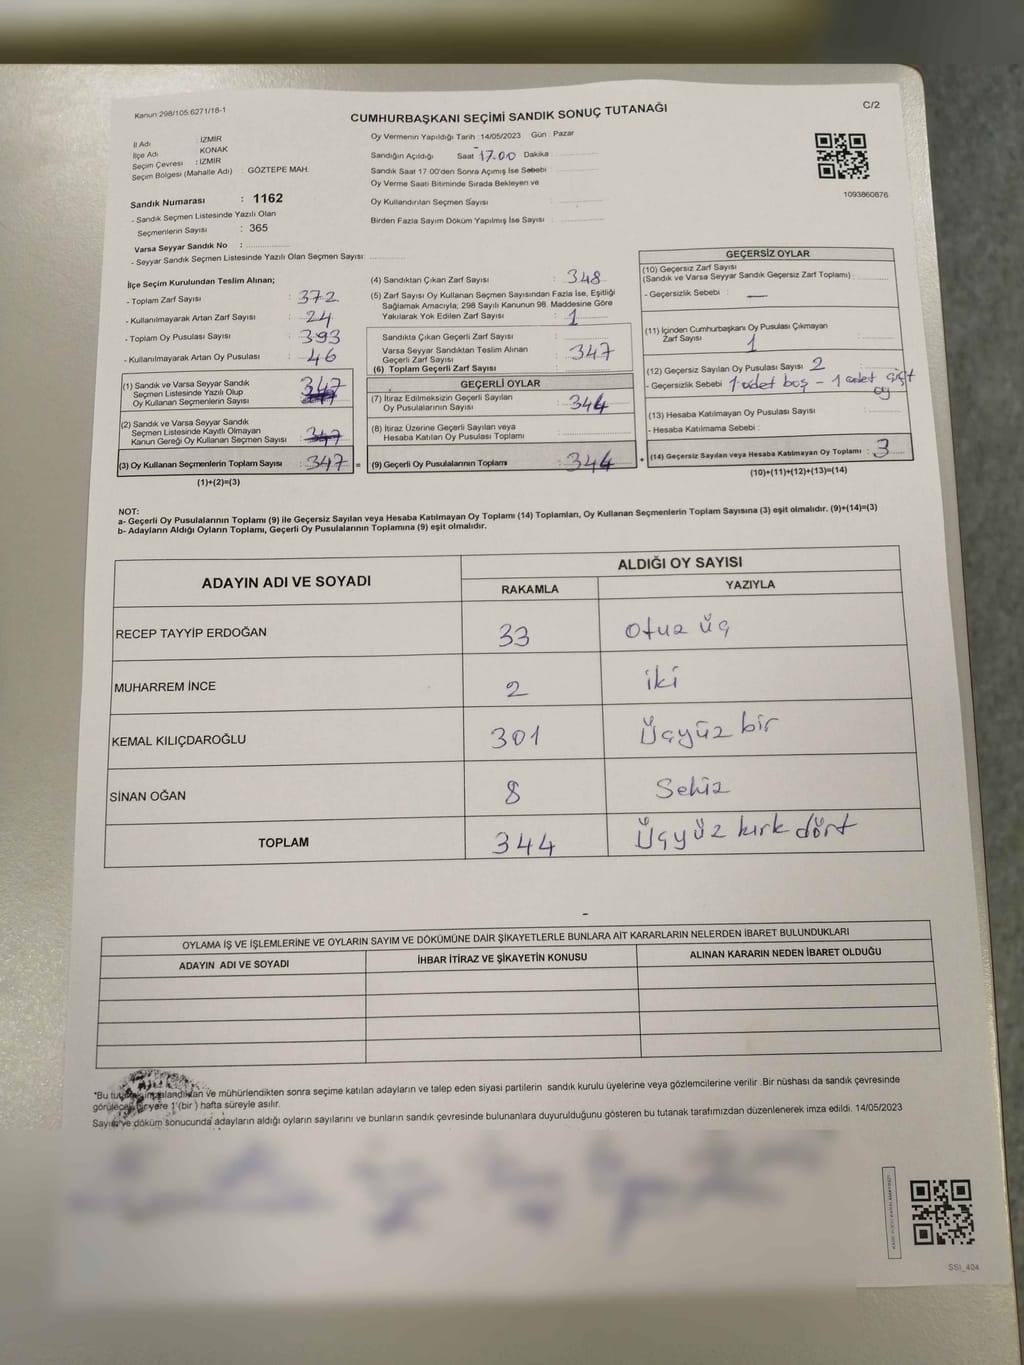 Kanun 298/105 6271/18-1
C/2
CUMHURBAŞKANI SEÇİMİ SANDIK SONUÇ TUTANAĞI
İl Adı : İZMİR
İlçe Adı KONAK
Seçim Çevresi : İZMİR
Seçim Bölgesi (Mahalle Adı) : GÖZTEPE MAH.
Sandık Numarası : 1162
- Sandık Seçmen Listesinde Yazılı Olan
Seçmenlerin Sayısı : 365
Varsa Seyyar Sandık No :
- Seyyar Sandık Seçmen Listesinde Yazılı Olan Seçmen Sayısı
Oy Vermenin Yapıldığı Tarih : 14/05/2023 Gün : Pazar
Sandığın Açıldığı Saat 17.00 Dakika
Sandık Saat 17 00'den Sonra Açımış İse Sebebi
Oy Verme Saati Bitiminde Sırada Bekleyen ve
Oy Kullandırılan Seçmen Sayısı
Birden Fazla Sayım Döküm Yapılmış İse Sayısı
1093860876
İlçe Seçim Kurulundan Teslim Alınan;
- Toplam Zarf Sayısı : 372
- Kullanılmayarak Artan Zarf Sayısı : 24
- Toplam Oy Pusulası Sayısı : 393
- Kullanılmayarak Artan Oy Pusulası : 46
(1) Sandık ve Varsa Seyyar Sandık
Seçmen Listesinde Yazılı Olup
Oy Kullanan Seçmenlerin Sayısı 347
(2) Sandık ve Varsa Seyyar Sandık
Seçmen Listesinde Kayıtlı Olmayan
Kanun Gereği Oy Kullanan Seçmen Sayısı : 347
(3) Oy Kullanan Seçmenlerin Toplam Sayısı : 347 =
(1)+(2)=(3)
(4) Sandıktan Çıkan Zarf Sayısı : 348
(5) Zarf Sayısı Oy Kullanan Seçmen Sayısından Fazla İse, Eşitliği
Sağlamak Amacıyla; 298 Sayılı Kanunun 98. Maddesine Göre
Yakılarak Yok Edilen Zarf Sayısı : 1
Sandıkta Çıkan Geçerli Zarf Sayısı
Varsa Seyyar Sandıktan Teslim Alınan
Geçerli Zarf Sayısı
(6) Toplam Geçerli Zarf Sayısı 347
GEÇERLİ OYLAR
(7) İtiraz Edilmeksizin Geçerli Sayılan
Oy Pusulalarının Sayısı : 344
(8) İtiraz Üzerine Geçerli Sayılan veya
Hesaba Katılan Oy Pusulası Toplamı
(9) Geçerli Oy Pusulalarının Toplamı : 344 +
GEÇERSİZ OYLAR
(10) Geçersiz Zarf Sayısı
(Sandık ve Varsa Seyyar Sandık Geçersiz Zarf Toplamı)
- Geçersizlik Sebebi : —
(11) İçinden Cumhurbaşkanı Oy Pusulası Çıkmayan
Zarf Sayısı 1
(12) Geçersiz Sayılan Oy Pusulası Sayısı 2
- Geçersizlik Sebebi 1 adet boş - 1 adet çift
oy
(13) Hesaba Katılmayan Oy Pusulası Sayısı
- Hesaba Katılmama Sebebi :
(14) Geçersiz Sayılan veya Hesaba Katılmayan Oy Toplamı : 3
(10)+(11)+(12)+(13)=(14)
NOT:
a- Geçerli Oy Pusulalarının Toplamı (9) ile Geçersiz Sayılan veya Hesaba Katılmayan Oy Toplamı (14) Toplamları, Oy Kullanan Seçmenlerin Toplam Sayısına (3) eşit olmalıdır. (9)+(14)=(3)
b- Adayların Aldığı Oyların Toplamı, Geçerli Oy Pusulalarının Toplamına (9) eşit olmalıdır.
ADAYIN ADI VE SOYADI
ALDIĞI OY SAYISI
RAKAMLA YAZIYLA
RECEP TAYYİP ERDOĞAN 33 Otuz üç
MUHARREM İNCE 2 iki
KEMAL KILIÇDAROĞLU 301 Üçyüz bir
SİNAN OĞAN 8 Sekiz
TOPLAM 344 Üçyüz kırk dört
OYLAMA İŞ VE İŞLEMLERİNE VE OYLARIN SAYIM VE DÖKÜMÜNE DAİR ŞİKAYETLERLE BUNLARA AİT KARARLARIN NELERDEN İBARET BULUNDUKLARI
ADAYIN ADI VE SOYADI İHBAR İTİRAZ VE ŞİKAYETİN KONUSU ALINAN KARARIN NEDEN İBARET OLDUĞU
*Bu ve mühürlendikten sonra seçime katılan adayların ve talep eden siyasi partilerin sandık kurulu üyelerine veya gözlemcilerine verilir .Bir nüshası da sandık çevresinde
görülecek bir yere 1 (bir ) hafta süreyle asılır.
Sayım ve döküm sonucunda adayların aldığı oyların sayılarını ve bunların sandık çevresinde bulunanlara duyurulduğunu gösteren bu tutanak tarafımızdan düzenlenerek imza edildi. 14/05/2023
SSI_404